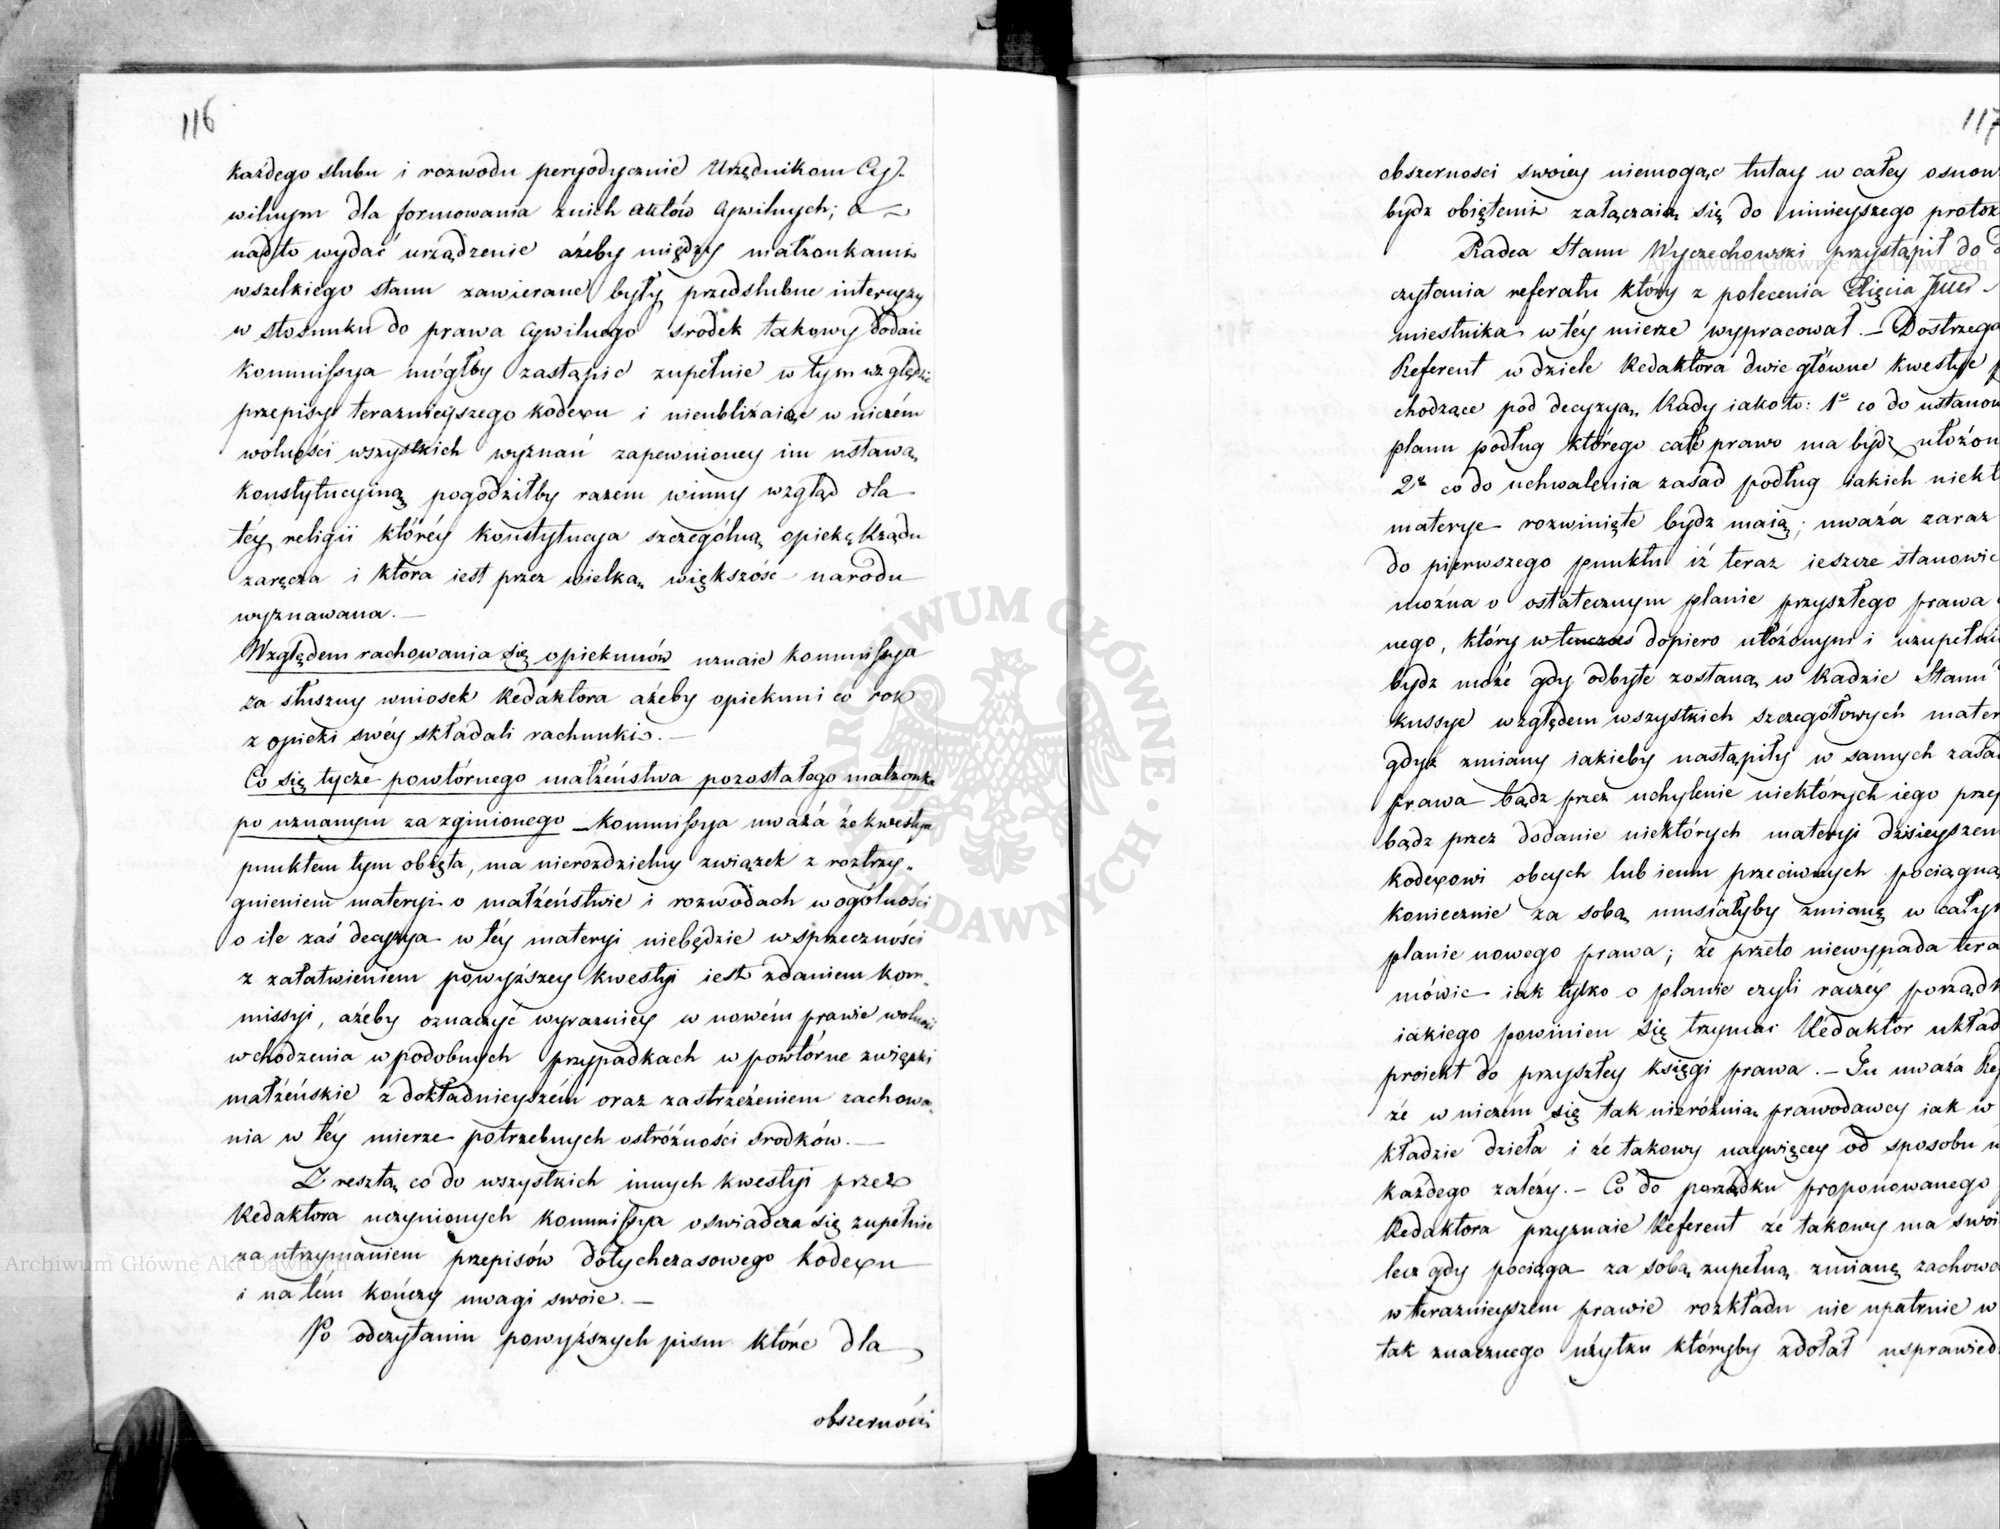 116
każdego slubu i rozwodu peryodycznie Urzędnikom Cy-
wilnym dla formowania znich aktów cywilnych; a
nadto wydać urządzenie ażeby między małżonkami
wszelkiego stanu zawierane były przedslubne intercyzy
w stosunku do prawa cywilnego srodek takowy dodaie
kommissya mógłby zastąpić zupełnie w tym względzie
przepisy teraznieyszego kodexu i nieubliżaiąc w niczém
wolności wszystkich wyznań zapewnioney im ustawą
konstytucyiną pogodziłby razem winny wzgląd dla
téy religii któréy konstytucya szczególną opiekę Rządu
zaręcza i która iest przez wielką większość narodu
wyznawana. —
Względem rachowania się opiekunów uznaie kommissya
za słuszny wniosek Redaktora ażeby opiekuni co rok
z opieki swéy składali rachunki. —
Co się tycze powtórnego małżeństwa pozostałego małzonka
po uznanym za zginionego — kommissya uważa że kwestya
punktem tym obięta, ma nierozdzielny związek z roztrzy-
gnieniem materyi o małżeństwie i rozwodach w ogólności
o ile zaś decyzya w téy materyi niebędzie w sprzeczności
z załatwieniem powyższey kwestyi iest zdaniem kom-
missyi, ażeby oznaczyć wyrazniey w nowém prawie wolność
wchodzenia w podobnych przypadkach w powtórne związki
małżeńskie z dokładnieyszém oraz zastrzeżeniem zachowa-
nia w téy mierze potrzebnych ostróżności srodków. —
Z resztą co do wszystkich innych kwestyi przez
Redaktora uczynionych kommissya oswiadcza się zupełnie
za utrzymaniem przepisów dotychczasowego kodexu
i na tém kończy uwagi swoie. —
Po odczytaniu powyższych pism które dla
obszerności
117
obszerności swoiey niemogąc tutay w całey osnow
bydz obiętemi załączaią się do ninieyszego protok
Radca Stanu Wyczechowski przystąpił do
czytania referatu który z polecenia Xięcia
miestnika w téy mierze wypracował. — Dostrzega
Referent w dziele Redaktora dwie główne kwestye p
chodzące pod decyzyą Rady iako to: 1o co do ustanow
planu podług którego całe prawo ma bydz ułożon
2o co do uchwalenia zasad podług iakich niekt
materye rozwinięte bydz maią; uważa zaraz
do pierwszego punktu iż teraz ieszcze stanowić
można o ostatecznym planie przyszłego prawa
nego, który wtenczas dopiero ułożonym i uzupełni
bydz może gdy odbyte zostaną w Radzie Stanu
kussye względem wszystkich szczegółowych mater
gdyż zmiany iakieby nastąpiły w samych zasa
prawa bądz przez uchylenie niektórych iego prze
bądz przez dodanie niektórych materyi dzisieyszem
kodexowi obcych lub iemu przeciwnych pociągną
koniecznie za sobą musiałyby zmianę w całym
planie nowego prawa; że przeto niewypada tera
mówić iak tylko o planie czyli raczéy porządk
iakiego powinien się trzymać Redaktor układ
proiekt do przyszłey księgi prawa. — Tu uważa Ref
że w niczém się tak nieróżnią prawodawcy iak w
kładzie dzieła i że takowy naywięcey od sposobu w
każdego zależy. — Co do porządku proponowanego
Redaktora przyznaie Referent że takowy ma swoi
lecz gdy pociąga za sobą zupełną zmianę zachowa
w teraznieyszem prawie rozkładu nie upatruie w
tak znacznego użytku któryby zdołał usprawied
Archiwum Główne Akt Dawnych
Archiwum Główne Akt Dawnych
ARCHIWUM GŁÓWNE AKT DAWNYCH